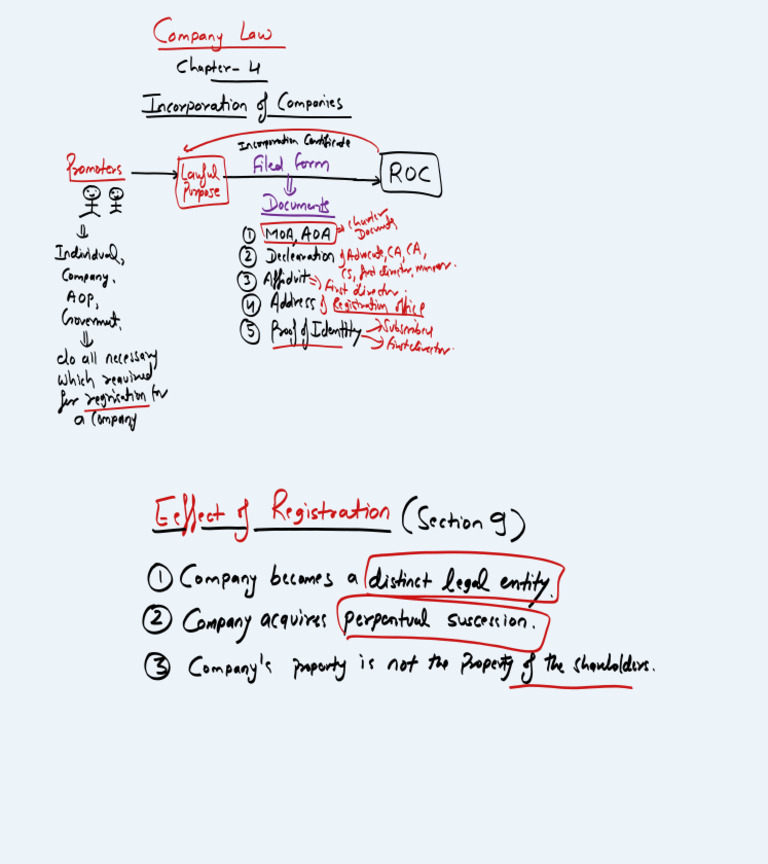 Company Law
Chapter- 4
Incorporation of Companies
Incorporation Certificate
Promoters
Lawful
Purpose
Filed form
ROC
Documents
① MOA, AOA
Charter
Documents
② Declearation of Advocate, CA, CA,
CS, first director, manager.
③ Affidvit => First director.
④ Address of Registration office
⑤ Proof of Identity
Subscribers
First director.
Individual,
Company,
AOP,
do all necessary
which required
for
for
a Company
Eeffect of Registration (Section 9)
① Company becomes a distinct legal entity.
② Company acquires perpentual suscession.
③ Company's property is not the property of the shareholders.